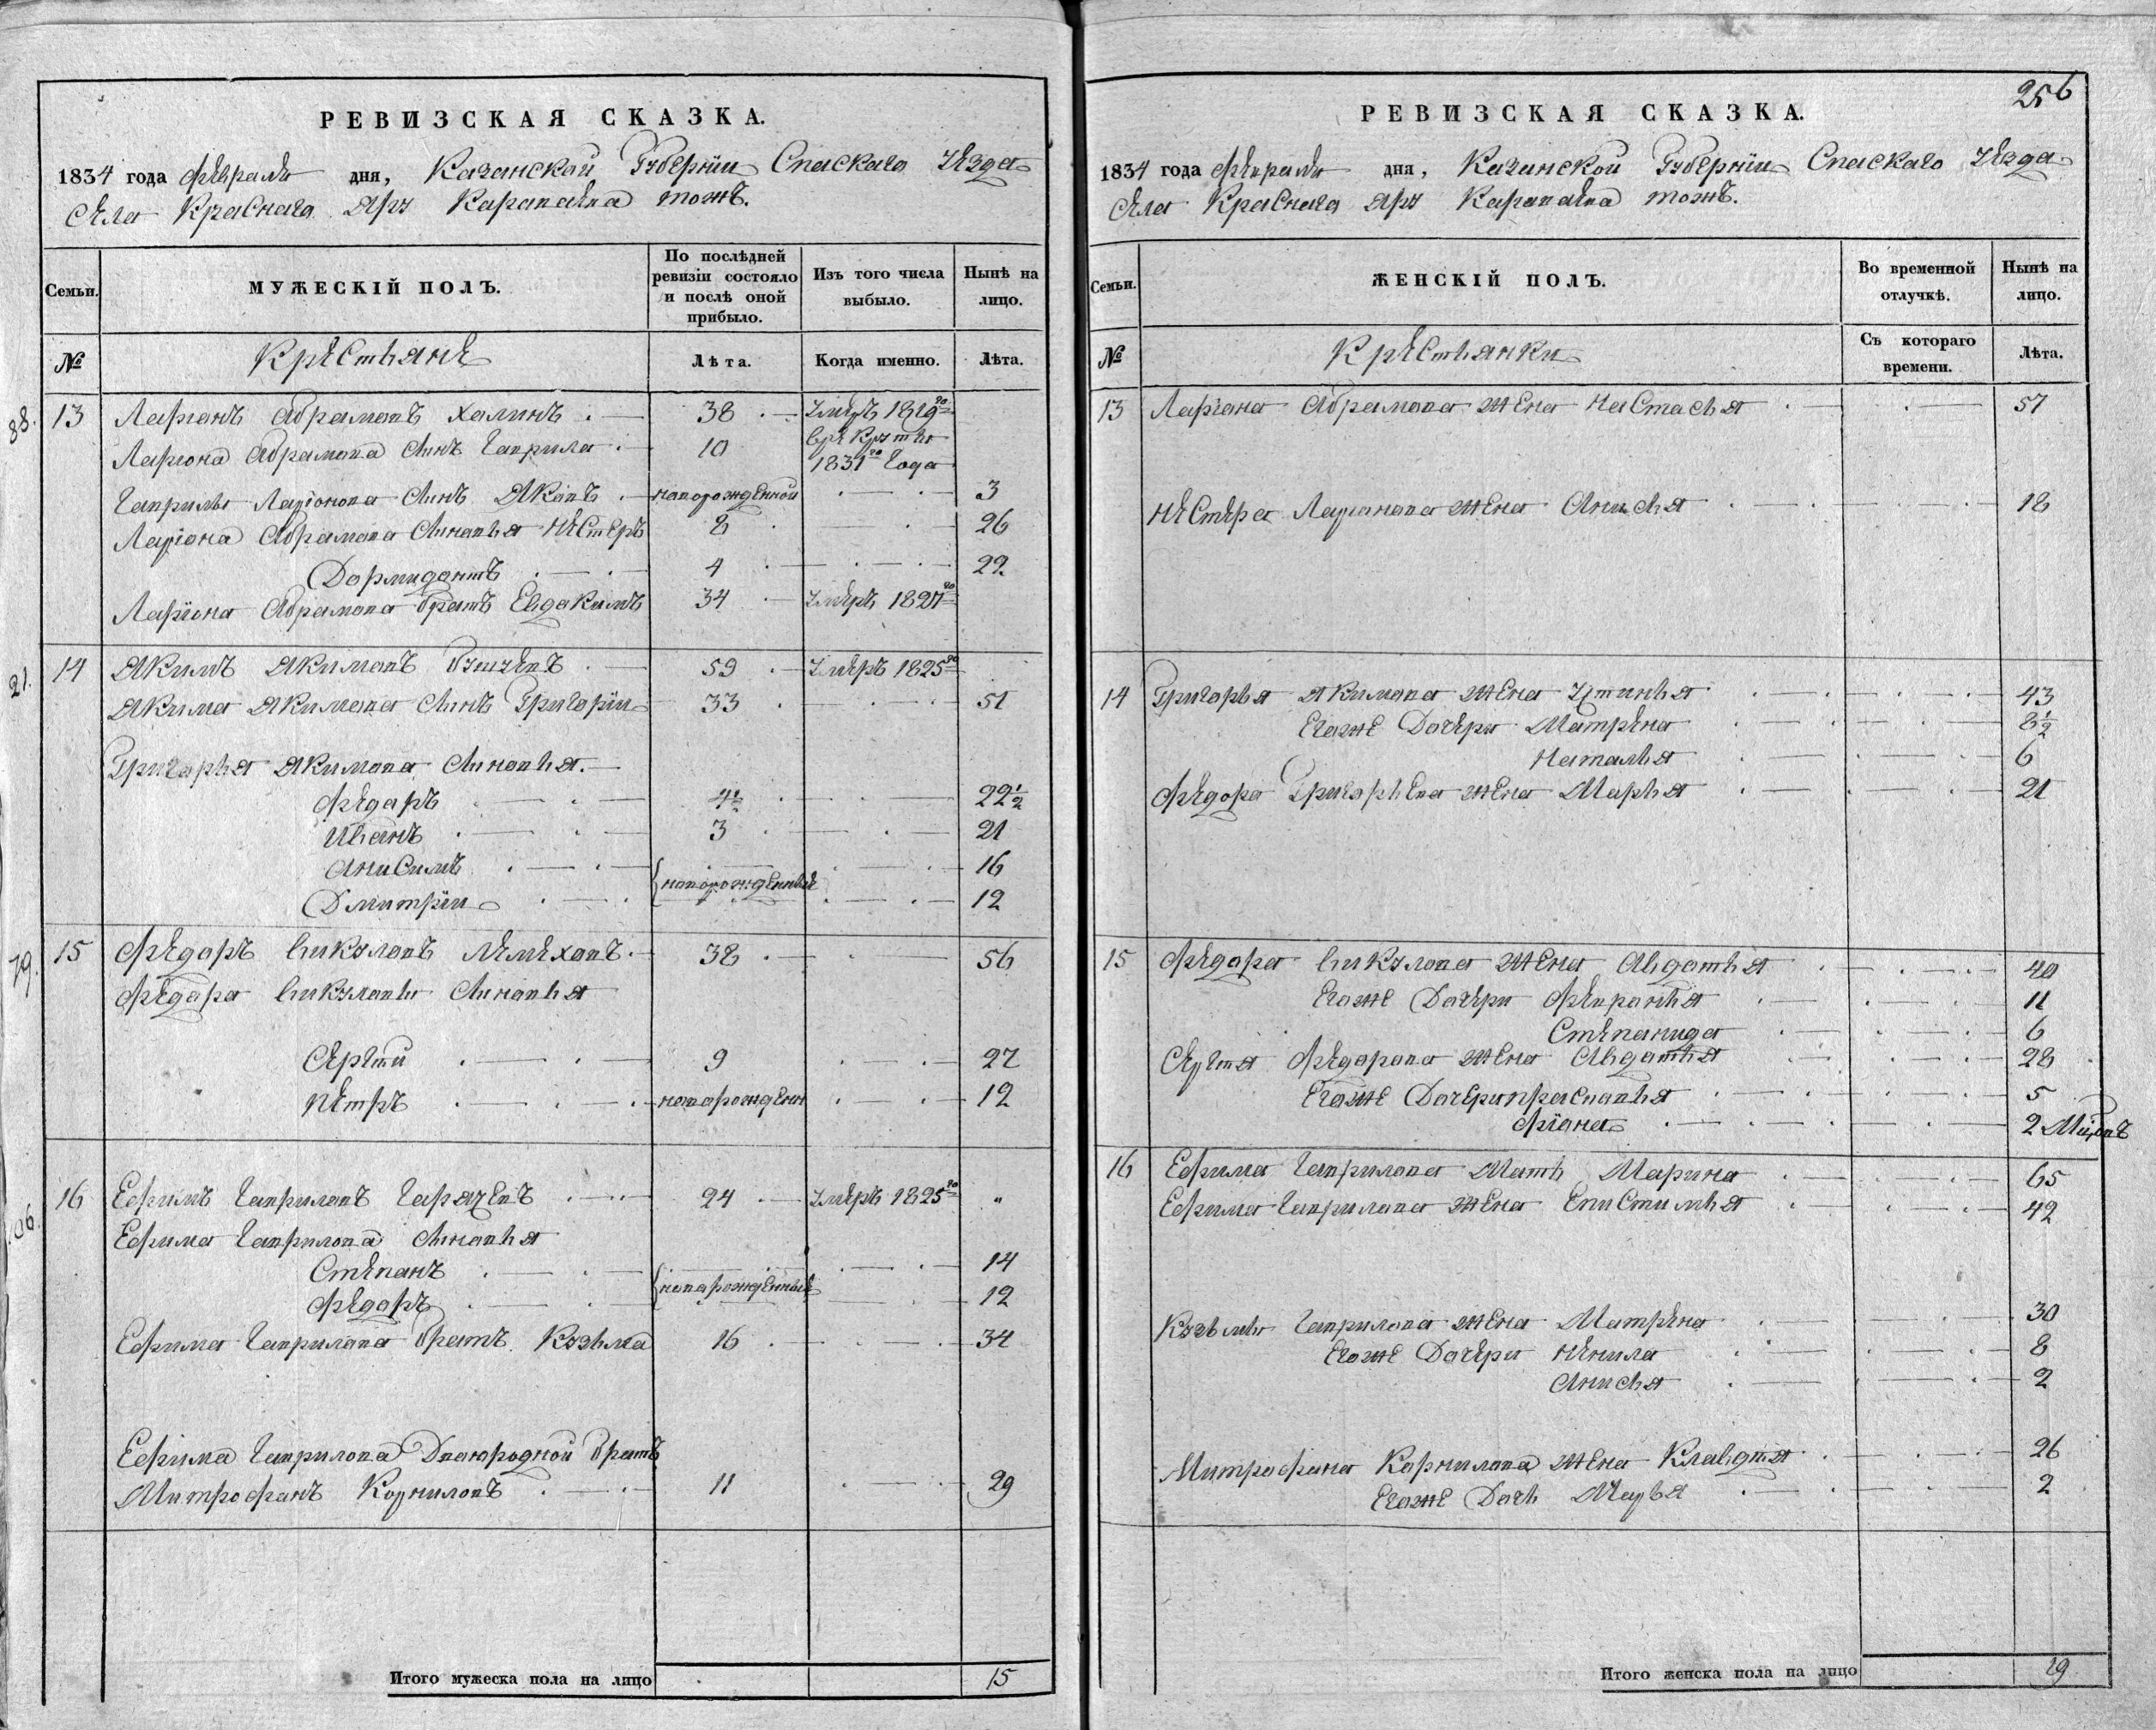 РЕВИЗСКАЯ СКАЗКА.
1834 года февраля дня, Казанской Губернии Спаскаго уезда
Села Краснаго Яру тожъ.
Семьи.
МУЖЕСКІЙ ПОЛЪ.
По послѣдней ревизіи состояло и послѣ оной прибыло.
Изъ того числа выбыло.
Нынѣ на лицо.
№
Крестьяне
Лѣта.
Когда именно.
Лѣта.
88.
13 Ларионъ Абрамовъ Халинъ 38 умеръ 1829го
Лариона Абрамова Сынъ Гаврила 10 в рекруты
1831го года
Гаврилы Ларіонова Сынъ Яковъ новорожденной 3
Ларіона Абрамова Сыновья Нестеръ 8 26
Дормидонтъ 4 22
Ларіона Абрамова братъ Евдокимъ 34 умеръ 1827го
21.
14 Акимъ Акимовъ 59 умеръ 1825го
Акима Акимова Сынъ Григорїи 33 51
Григорья Акимова Сыновья
Федоръ 4½ 22½
Иванъ 3 21
Анисимъ 16
новорожденные
Дмитрїи 12
79.
15 Федоръ Викуловъ Лемеховъ 38 56
Федора Викулова Сыновья
Сергѣи 9 27
Петръ новорожден 12
106.
16 Ефимъ Гавриловъ 24 умеръ 1825го "
Ефима Гаврилова Сыновья
Степанъ 14
новорожденные
Федоръ 12
Ефима Гаврилова братъ Козьма 16 34
Ефима Гаврилова Двоюродной братъ
Митрофанъ Корниловъ 11 29
Итого мужеска пола на лицо 15
256
РЕВИЗСКАЯ СКАЗКА.
1834 года февраля дня, Казанской Губернии Спаскаго уезда
Села Краснаго Яру тожъ.
Семьи.
ЖЕНСКІЙ ПОЛЪ.
Во временной отлучкѣ.
Нынѣ на лицо.
№
Крестьянки
Съ котораго времени.
Лѣта.
13 Лариона Абрамова жена Настасья 57
Нестера Ларионова жена Анисья 18
14 Григорья Акимова жена Устинья 43
Егоже Дочери Матрена 8½
Наталья 6
Федора Григорьева жена Марья 21
15 Федора Викулова жена Авдотья 40
Егоже Дочери Февронья 11
Степанида 6
Сергея Федорова жена Авдотья 28
Егоже Дочери Прасковья 5
2
16 Ефима Гаврилова Мать Марина 65
Ефима Гаврилова жена Епистимья 42
Козьмы Гаврилова жена Матрена 30
Егоже Дочери Ненила 8
Анисья 2
Митрофана Корнилова жена Клавдея 26
Егоже Дочь Марья 2
Итого женска пола на лицо 19